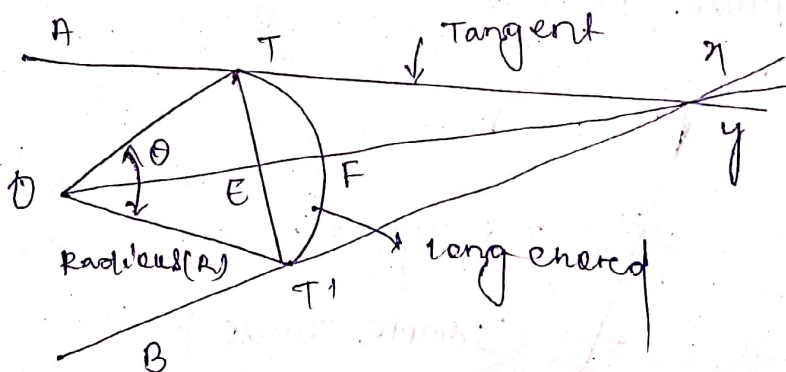 A
T
Tangent
x
y
θ
O
E
F
Radious(R)
T1
long chored
B